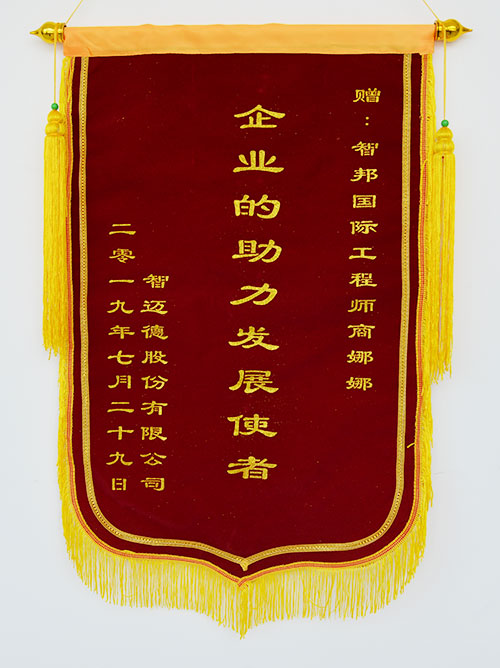 赠：智邦国际工程师商娜娜
企业的助力发展使者
智迈德股份有限公司
二零一九年七月二十九日